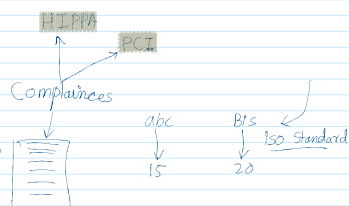 HIPPA
PCI
Complainces
abc
BIs
ISO Standard
15
20